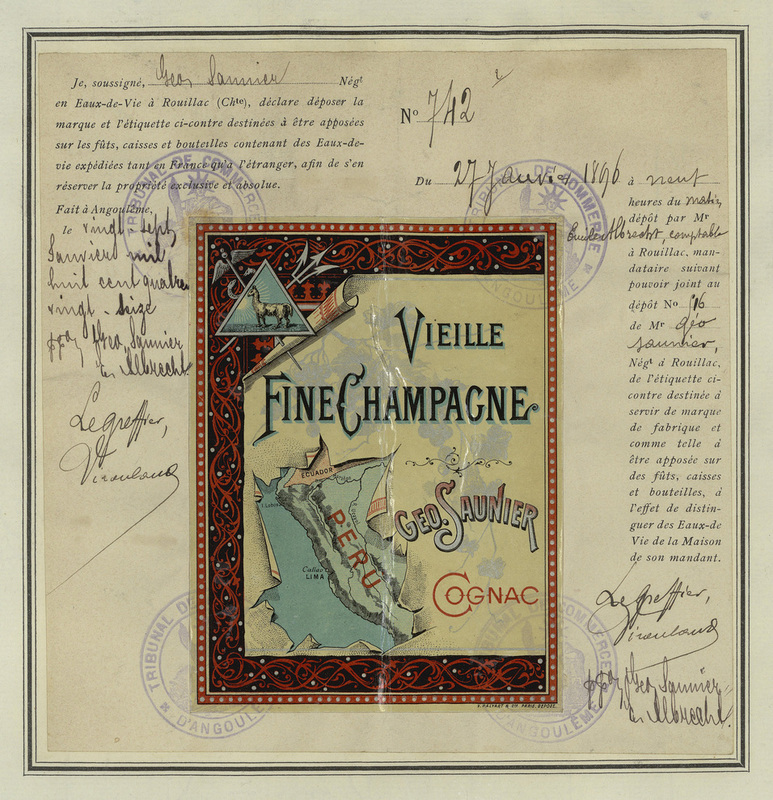 Je, soussigné, Geo Saunier Négt
en Eaux-de-Vie à Rouillac (Chte), déclare déposer la
marque et l'étiquette ci-contre destinées à être apposées
sur les fûts, caisses et bouteilles contenant des Eaux-de-
vie expédiées tant en France qu'à l'étranger, afin de s'en
réserver la propriété exclusive et absolue.
Fait à Angoulême,
le vingt sept
Janvier mil
huit cent quatre
vingt-seize
ppon Geo Saunier
Em Albrecht
Le greffier,
No 742
Du 27 Janvier 1896 à neuf
heures du matin
dépôt par Mr
Emile Albrecht, comptable
à Rouillac, man-
dataire suivant
pouvoir joint au
dépôt No 516
de Mr Géo
Saunier,
Négt à Rouillac,
de l'étiquette ci-
contre destinée à
servir de marque
de fabrique et
comme telle à
être apposée sur
des fûts, caisses
et bouteilles, à
l'effet de distin-
guer des Eaux-de
Vie de la Maison
de son mandant.
Le greffier,
ppon Geo Saunier
Em Albrecht
VIEILLE
FINE CHAMPAGNE
GEO. SAUNIER
COGNAC
ECUADOR
PERU
Callao
LIMA
PARIS. DEPOSÉ.
TRIBUNAL DE COMMERCE
TRIBUNAL DE COMMERCE
D'ANGOULÊME
TRIBUNAL DE
D'ANGOULÊME
COMMERCE
D'ANGOULÊME